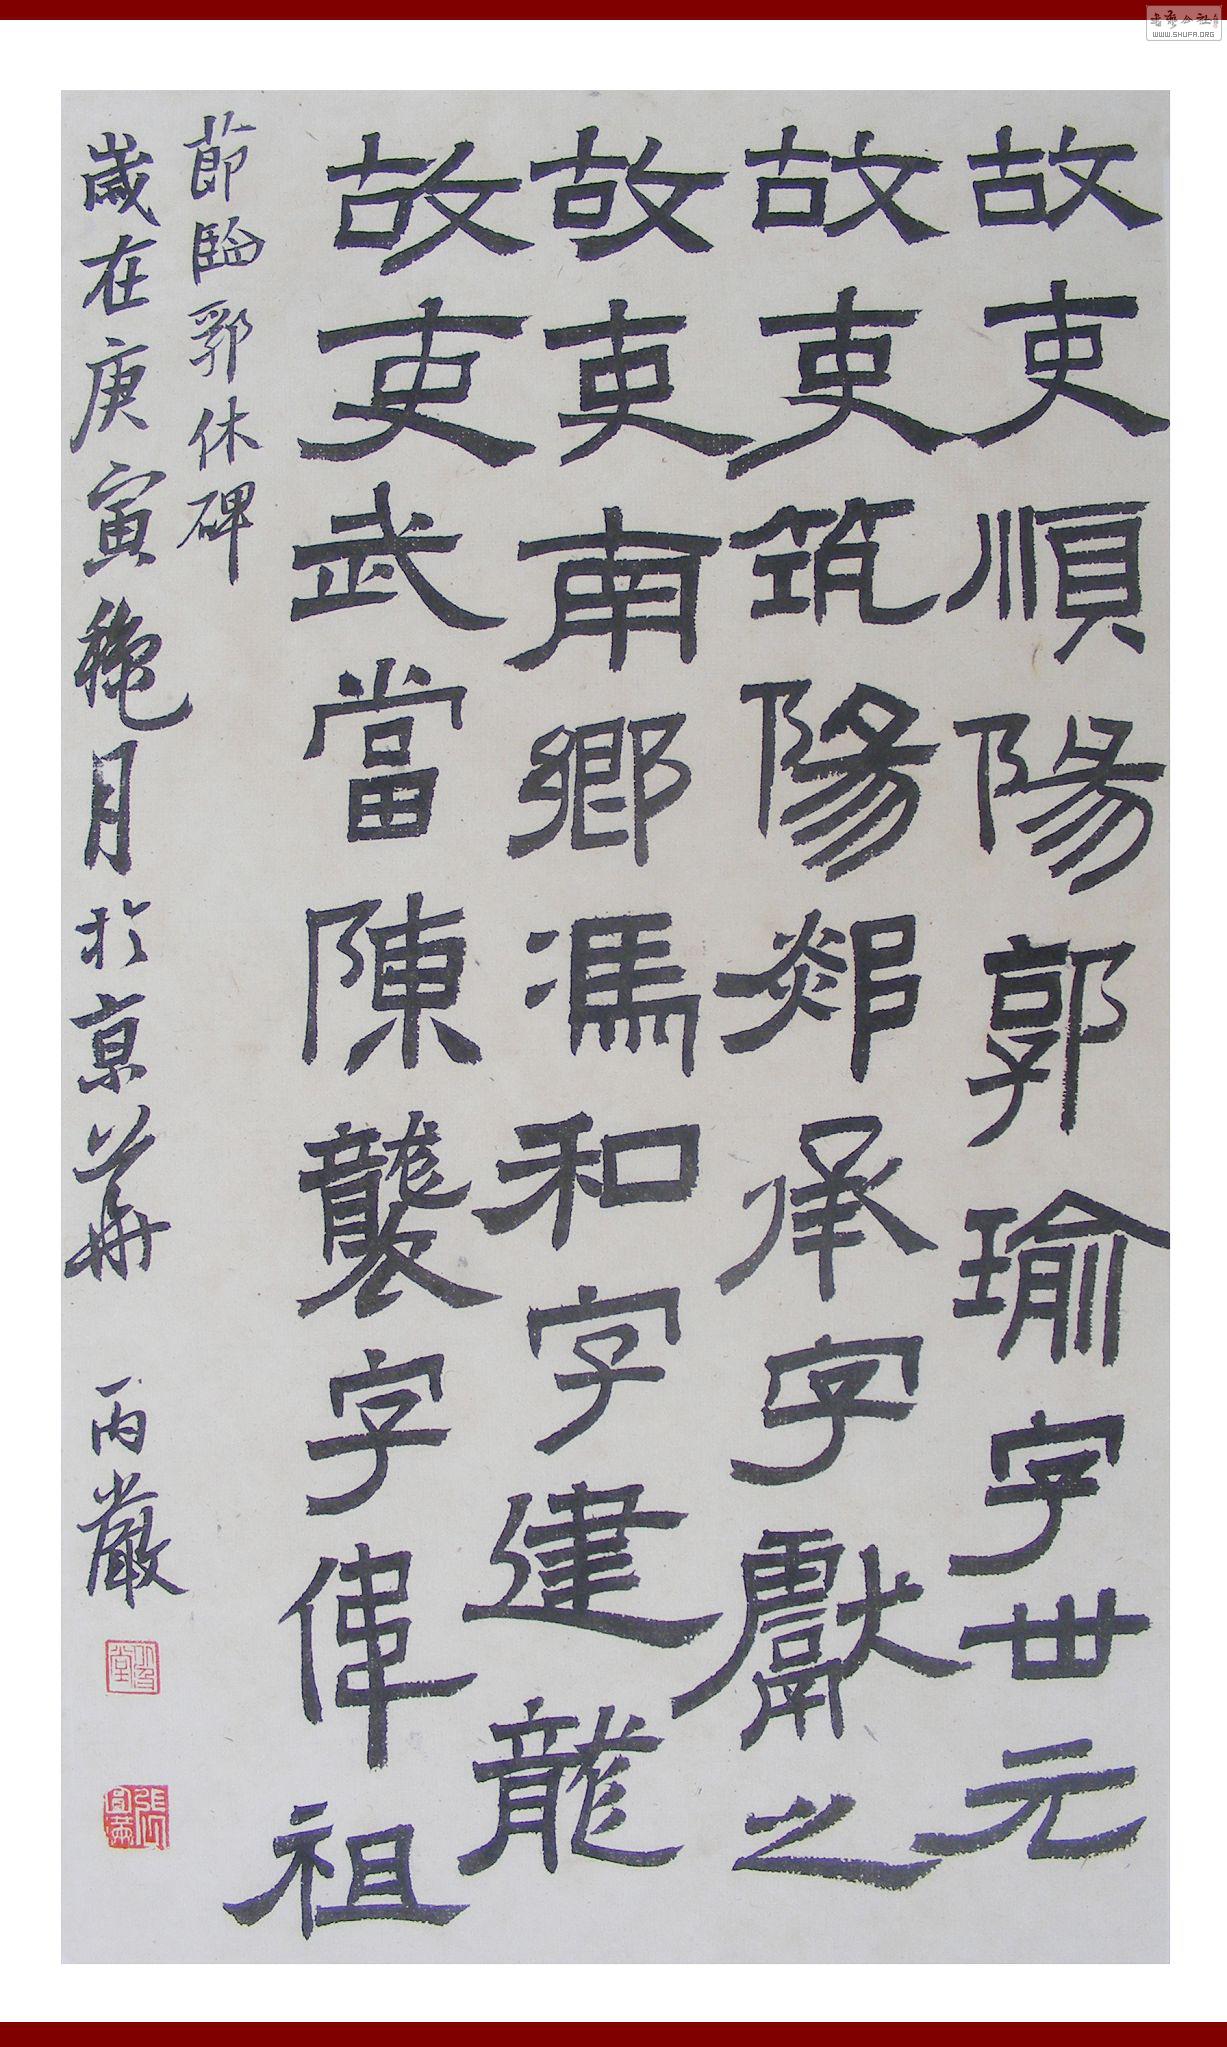 故吏順陽郭瑜字世元
故吏筑陽郯承字獻之
故吏南鄉馮和字建龍
故吏武當陳襲字偉祖
節臨郭休碑
歲在庚寅穐月於京華 丙嚴
書藝公社
WWW.SHUFA.ORG